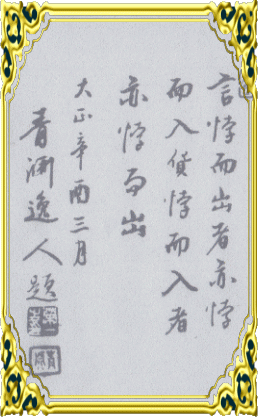 言悖而出者亦悖
而入貨悖而入者
亦悖而出
大正辛酉三月
青淵逸人題